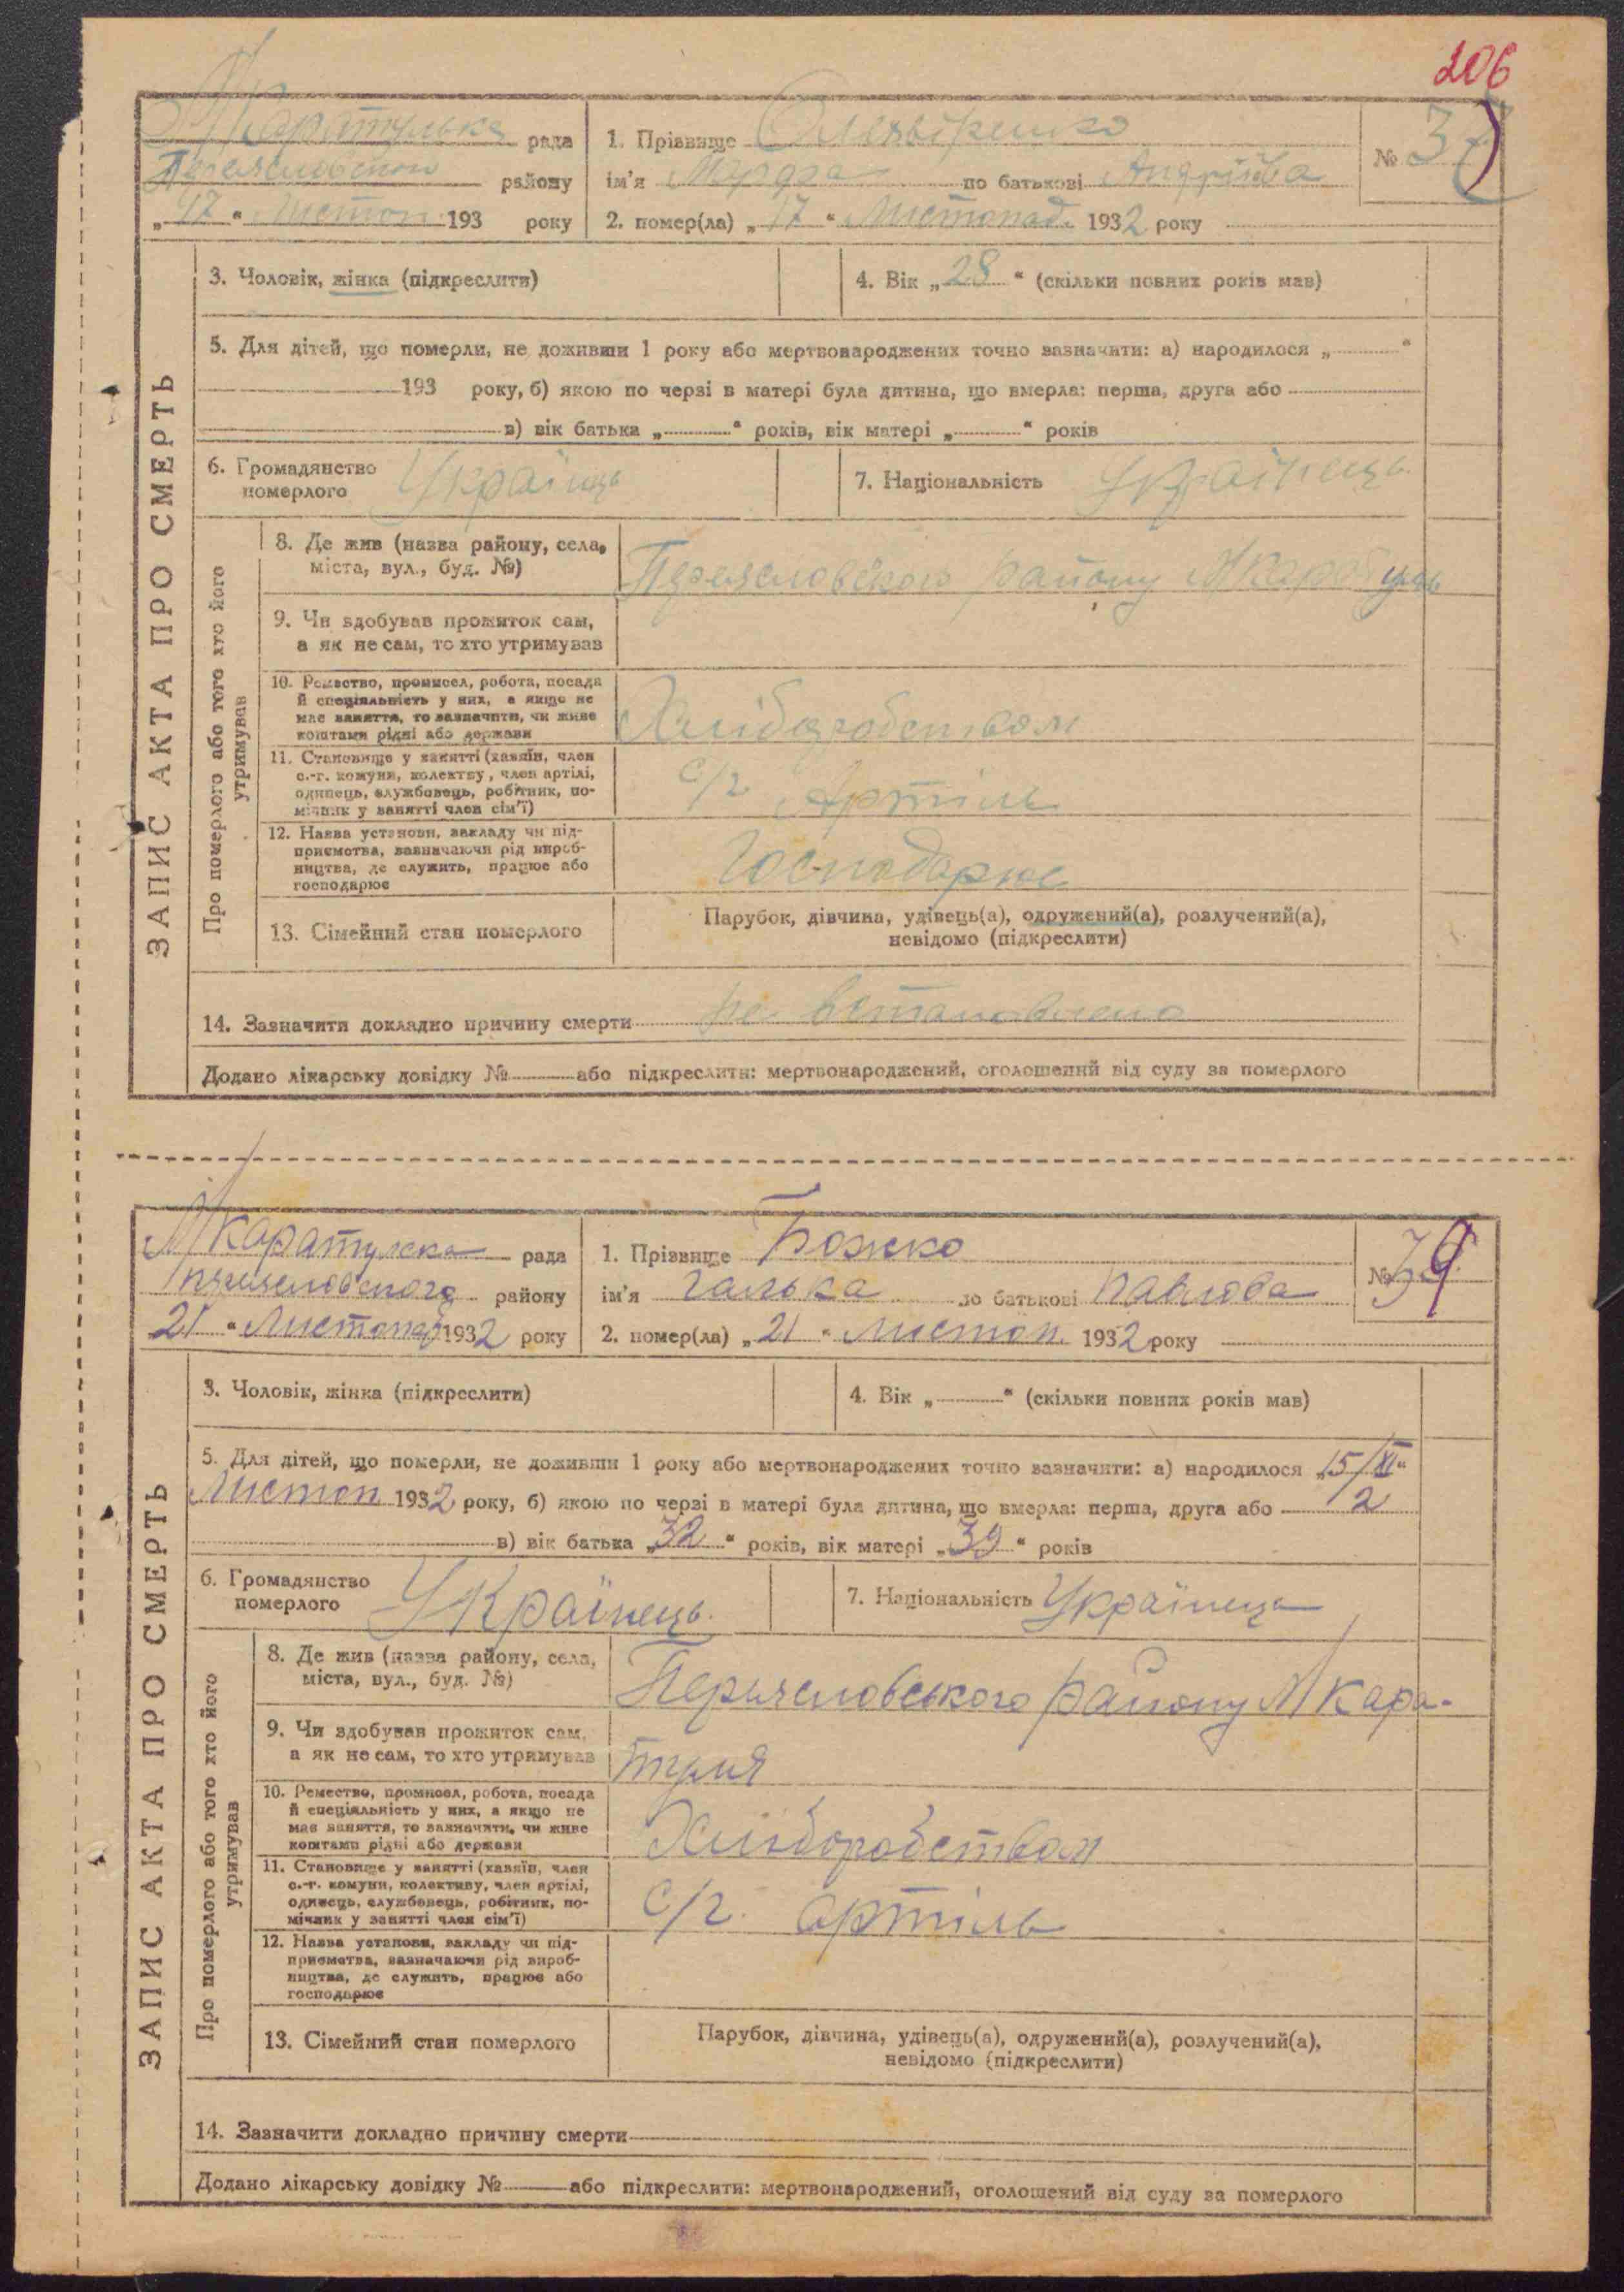 206
М Каратулька рада
Переясловськ району
„ 17 “ Листоп. 193 року
1. Прізвище
ім'я Марфа по батькові Андріїва
2. помер(ла) „ 17 “ Листопад. 1932 року
№ 37
3. Чоловік, жінка (підкреслити)
4. Вік „ 28 “ (скільки повних років мав)
5. Для дітей, що померли, не доживши 1 року або мертвонароджених точно зазначити: а) народилося „ “
193 року, б) якою по черзі в матері була дитина, що вмерла: перша, друга або
в) вік батька „ “ років, вік матері „ “ років
6. Громадянство
померлого Українець
7. Національність Українець
ЗАПИС АКТА ПРО СМЕРТЬ
Про померлого або того хто його
утримував
8. Де жив (назва району, села,
міста, вул., буд. №)
Переясловського району М Карат
9. Чи здобував прожиток сам,
а як не сам, то хто утримував
10. Ремество, промисел, робота, посада
й спеціяльність у них, а якщо не
має заняття, то зазначити, чи живе
коштами рідні або держави
Хліборобством
11. Становище у занятті (хазяїн, член
с.-г. комуни, колектву, член артілі,
одинець, службовець, робітник, по-
мічник у занятті член сім'ї)
с/г Артіль
12. Назва установи, закладу чи під-
приємства, зазначаючи рід вироб-
ництва, де служить, працює або
господарює
Господарює
13. Сімейний стан померлого
Парубок, дівчина, удівець(а), одружений(а), розлучений(а),
невідомо (підкреслити)
14. Зазначити докладно причину смерти не встановлено
Додано лікарську довідку № або підкреслити: мертвонароджений, оголошений від суду за померлого
М Каратулька рада
Переясловського району
21 “ Листопад 1932 року
1. Прізвище Божко
ім'я Галька по батькові Павлова
2. помер(ла) „ 21 “ Листоп. 1932 року
№ 39
3. Чоловік, жінка (підкреслити)
4. Вік „ “ (скільки повних років мав)
5. Для дітей, що померли, не доживши 1 року або мертвонароджених точно зазначити: а) народилося „15/XI“
Листоп 1932 року, б) якою по черзі в матері була дитина, що вмерла: перша, друга або 2
в) вік батька „32“ років, вік матері „39“ років
6. Громадянство
померлого Українець.
7. Національність Українець
ЗАПИС АКТА ПРО СМЕРТЬ
Про померлого або того хто його
утримував
8. Де жив (назва району, села,
міста, вул., буд. №)
Переясловського району М Кара-
9. Чи здобував прожиток сам,
а як не сам, то хто утримував
туля
10. Ремество, промисел, робота, посада
й спеціяльність у них, а якщо не
має заняття, то зазначити, чи живе
коштами рідні або держави
Хліборобством
11. Становище у занятті (хазяїн, член
с.-г. комуни, колективу, член артілі,
одинець, службовець, робітник, по-
мічник у занятті член сім'ї)
с/г. артіль
12. Назва установи, закладу чи під-
приємства, зазначаючи рід вироб-
ництва, де служить, працює або
господарює
13. Сімейний стан померлого
Парубок, дівчина, удівець(а), одружений(а), розлучений(а),
невідомо (підкреслити)
14. Зазначити докладно причину смерти
Додано лікарську довідку № або підкреслити: мертвонароджений, оголошений від суду за померлого